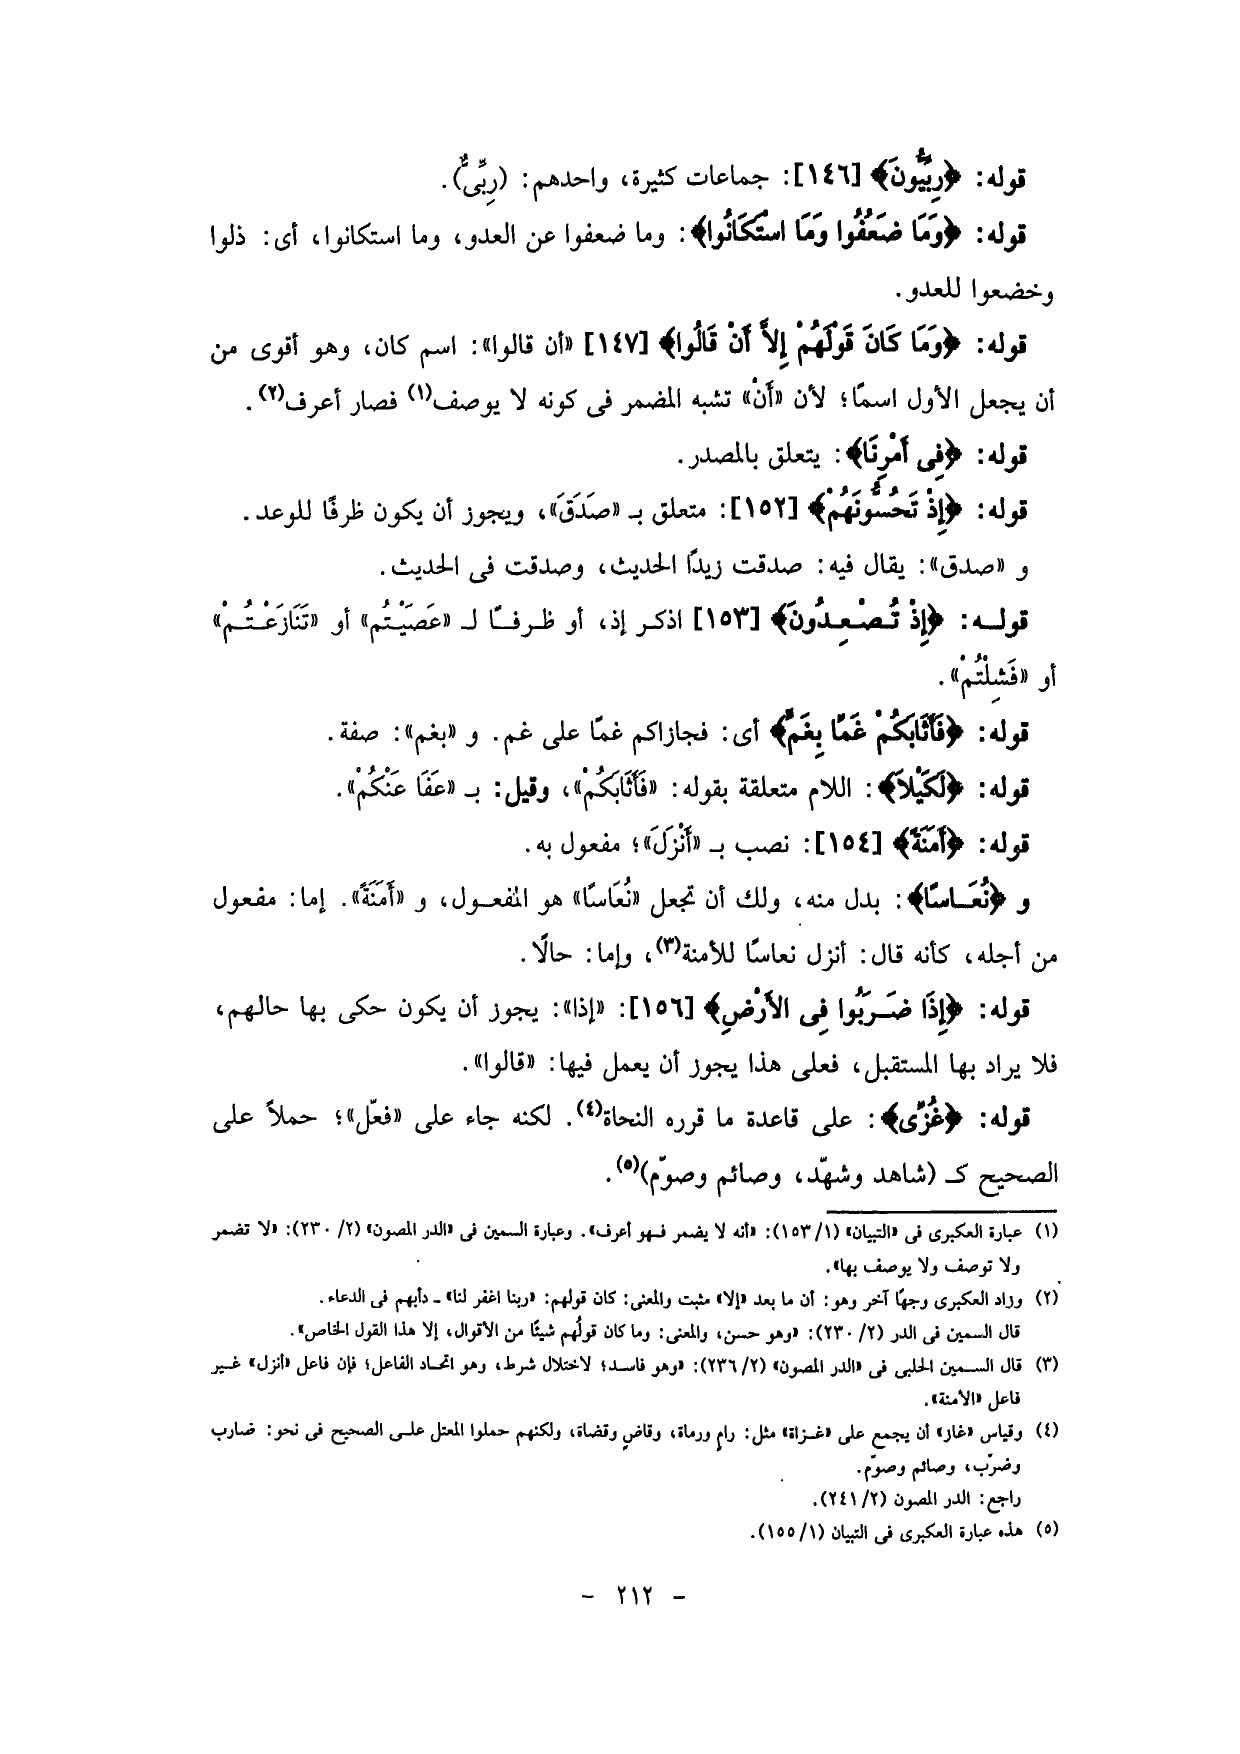 قوله: ﴿رِبِّيُّونَ﴾ [١٤٦]: جماعات كثيرة، واحدهم: (رِبِّىٌّ).
قوله: ﴿وَمَا ضَعُفُوا وَمَا اسْتَكَانُوا﴾: وما ضعفوا عن العدو، وما استكانوا، أى: ذلوا
وخضعوا للعدو.
قوله: ﴿وَمَا كَانَ قَوْلَهُمْ إِلاَّ أَنْ قَالُوا﴾ [١٤٧] «أن قالوا»: اسم كان، وهو أقوى من
أن يجعل الأول اسمًا؛ لأن «أَنْ» تشبه المضمر فى كونه لا يوصف(١) فصار أعرف(٢).
قوله: ﴿فِى أَمْرِنَا﴾: يتعلق بالمصدر.
قوله: ﴿إِذْ تَحُسُّونَهُمْ﴾ [١٥٢]: متعلق بـ «صَدَقَ»، ويجوز أن يكون ظرفًا للوعد.
و «صدق»: يقال فيه: صدقت زيدًا الحديث، وصدقت فى الحديث.
قولـه: ﴿إِذْ تُـصْـعِـدُونَ﴾ [١٥٣] اذكـر إذ، أو ظـرفـًا لـ «عَصَيْـتُم» أو «تَنَازَعْـتُـمْ»
أو «فَشِلْتُمْ».
قوله: ﴿فَأَثَابَكُمْ غَمًّا بِغَمٍّ﴾ أى: فجازاكم غمًا على غم. و «بغم»: صفة.
قوله: ﴿لَكَيْلاَ﴾: اللام متعلقة بقوله: «فَأَثَابَكُمْ»، وقيل: بـ «عَفَا عَنْكُمْ».
قوله: ﴿أَمَنَةً﴾ [١٥٤]: نصب بـ «أَنْزَلَ»؛ مفعول به.
و ﴿نُعَـاسًا﴾: بدل منه، ولك أن تجعل «نُعَاسًا» هو المفعـول، و «أَمَنَةً». إما: مفعول
من أجله، كأنه قال: أنزل نعاسًا للأمنة(٣)، وإما: حالًا.
قوله: ﴿إِذَا ضَـرَبُوا فِى الأَرْضِ﴾ [١٥٦]: «إذا»: يجوز أن يكون حكى بها حالهم،
فلا يراد بها المستقبل، فعلى هذا يجوز أن يعمل فيها: «قالوا».
قوله: ﴿غُزًّى﴾: على قاعدة ما قرره النحاة(٤). لكنه جاء على «فعّل»؛ حملاً على
الصحيح كـ (شاهد وشهّد، وصائم وصوّم)(٥).
(١) عبارة العكبرى فى «التبيان» (١/١٥٣): «أنه لا يضمر فـهو أعرف». وعبارة السمين فى «الدر المصون» (٢/ ٢٣٠): «لا تضمر
ولا توصف ولا يوصف بها».
(٢) وزاد العكبرى وجهًا آخر وهو: أن ما بعد «إلا» مثبت والمعنى: كان قولهم: «ربنا اغفر لنا» ـ دأبهم فى الدعاء.
قال السمين فى الدر (٢/ ٢٣٠): «وهو حسن، والمعنى: وما كان قولُهم شيئًا من الأقوال، إلا هذا القول الخاص».
(٣) قال السـمين الحلبى فى «الدر المصون» (٢/ ٢٣٦): «وهو فاسـد؛ لاختلال شرط، وهو اتحـاد الفاعل؛ فإن فاعل «أنزل» غـير
فاعل «الأمنة».
(٤) وقياس «غاز» أن يجمع على «غـزاة» مثل: رامٍ ورماة، وقاضٍ وقضاة، ولكنهم حملوا المعتل علـى الصحيح فى نحو: ضارب
وضرّب، وصائم وصوّم.
راجع: الدر المصون (٢/ ٢٤١).
(٥) هذه عبارة العكبرى فى التبيان (١/ ١٥٥).
- ٢١٢ -